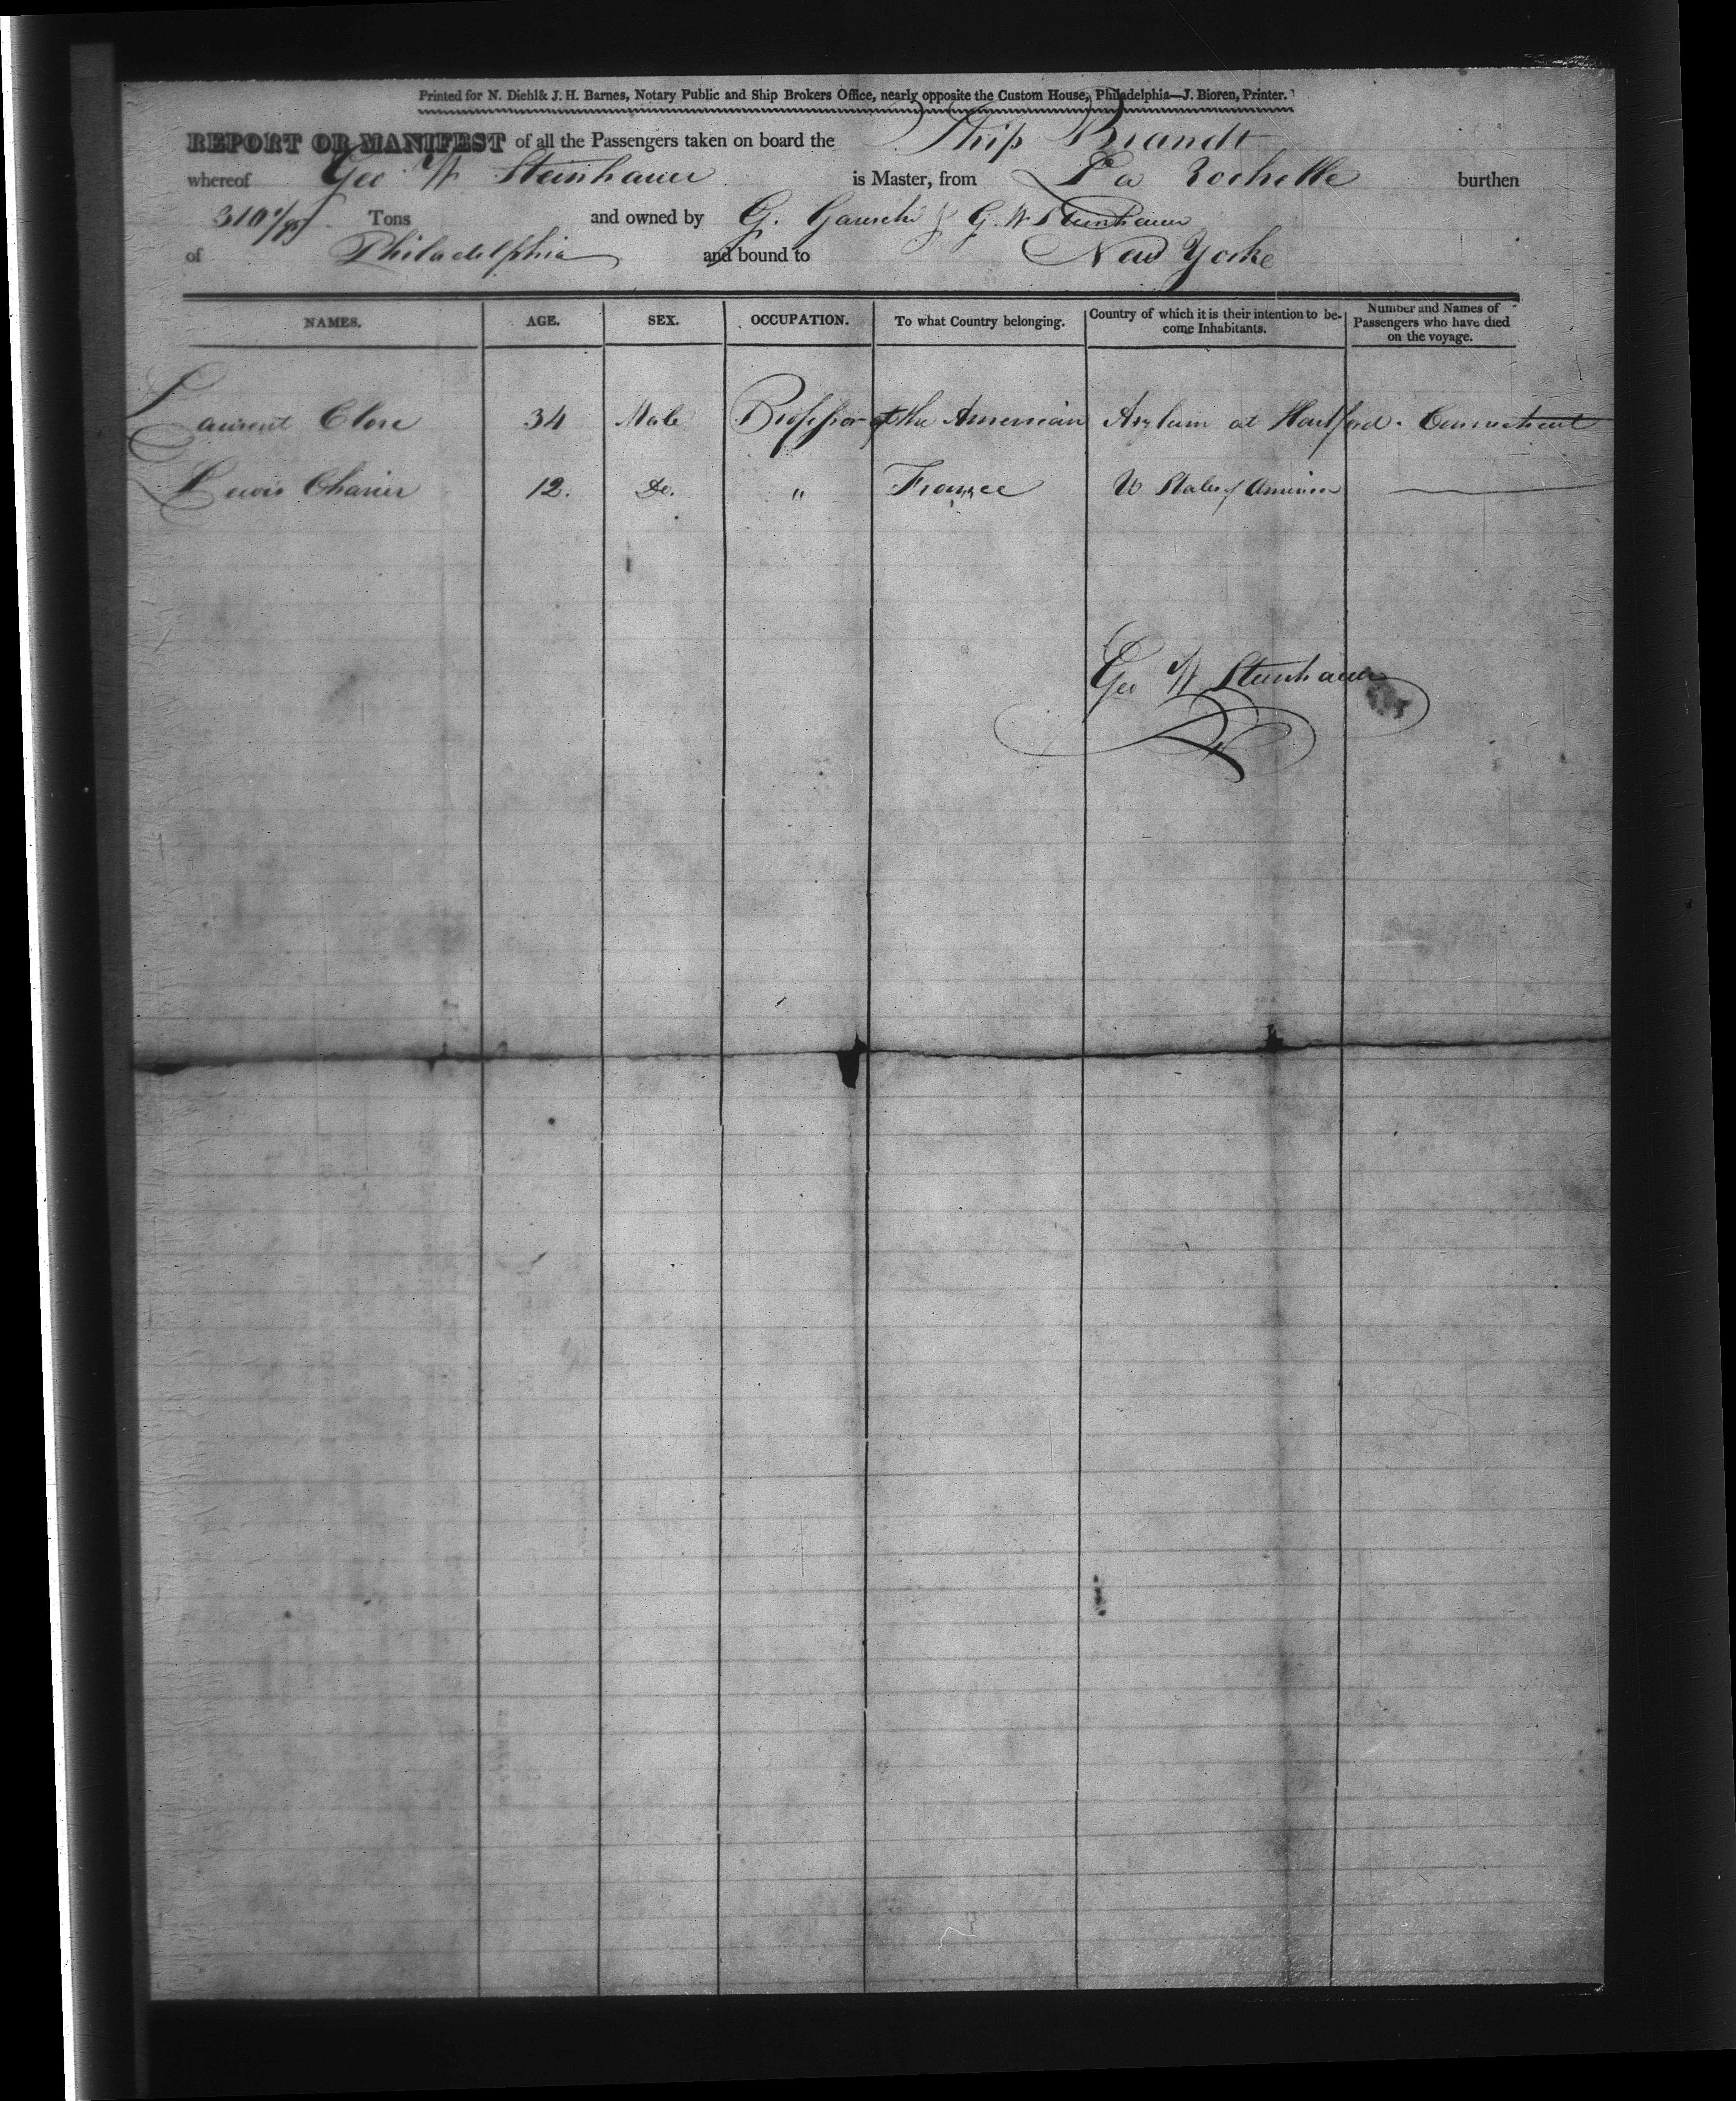 Printed for N. Diehl & J. H. Barnes, Notary Public and Ship Brokers Office, nearly opposite the Custom House, Philadelphia—J. Bioren, Printer.
REPORT OR MANIFEST of all the Passengers taken on board the Ship Brandt
whereof Geo W Steinhauer is Master, from La Rochelle burthen
310 /95 Tons and owned by G. & G. W Steinhauer
of Philadelphia and bound to New Yorke
NAMES. AGE. SEX. OCCUPATION. To what Country belonging. Country of which it is their intention to become Inhabitants. Number and Names of Passengers who have died on the voyage.
Laurent Clerc 34 Male Professor at the American Asylum at Hartford. Connecticut
Lewis 12. Do. " France U States of America
Geo W Steinhauer